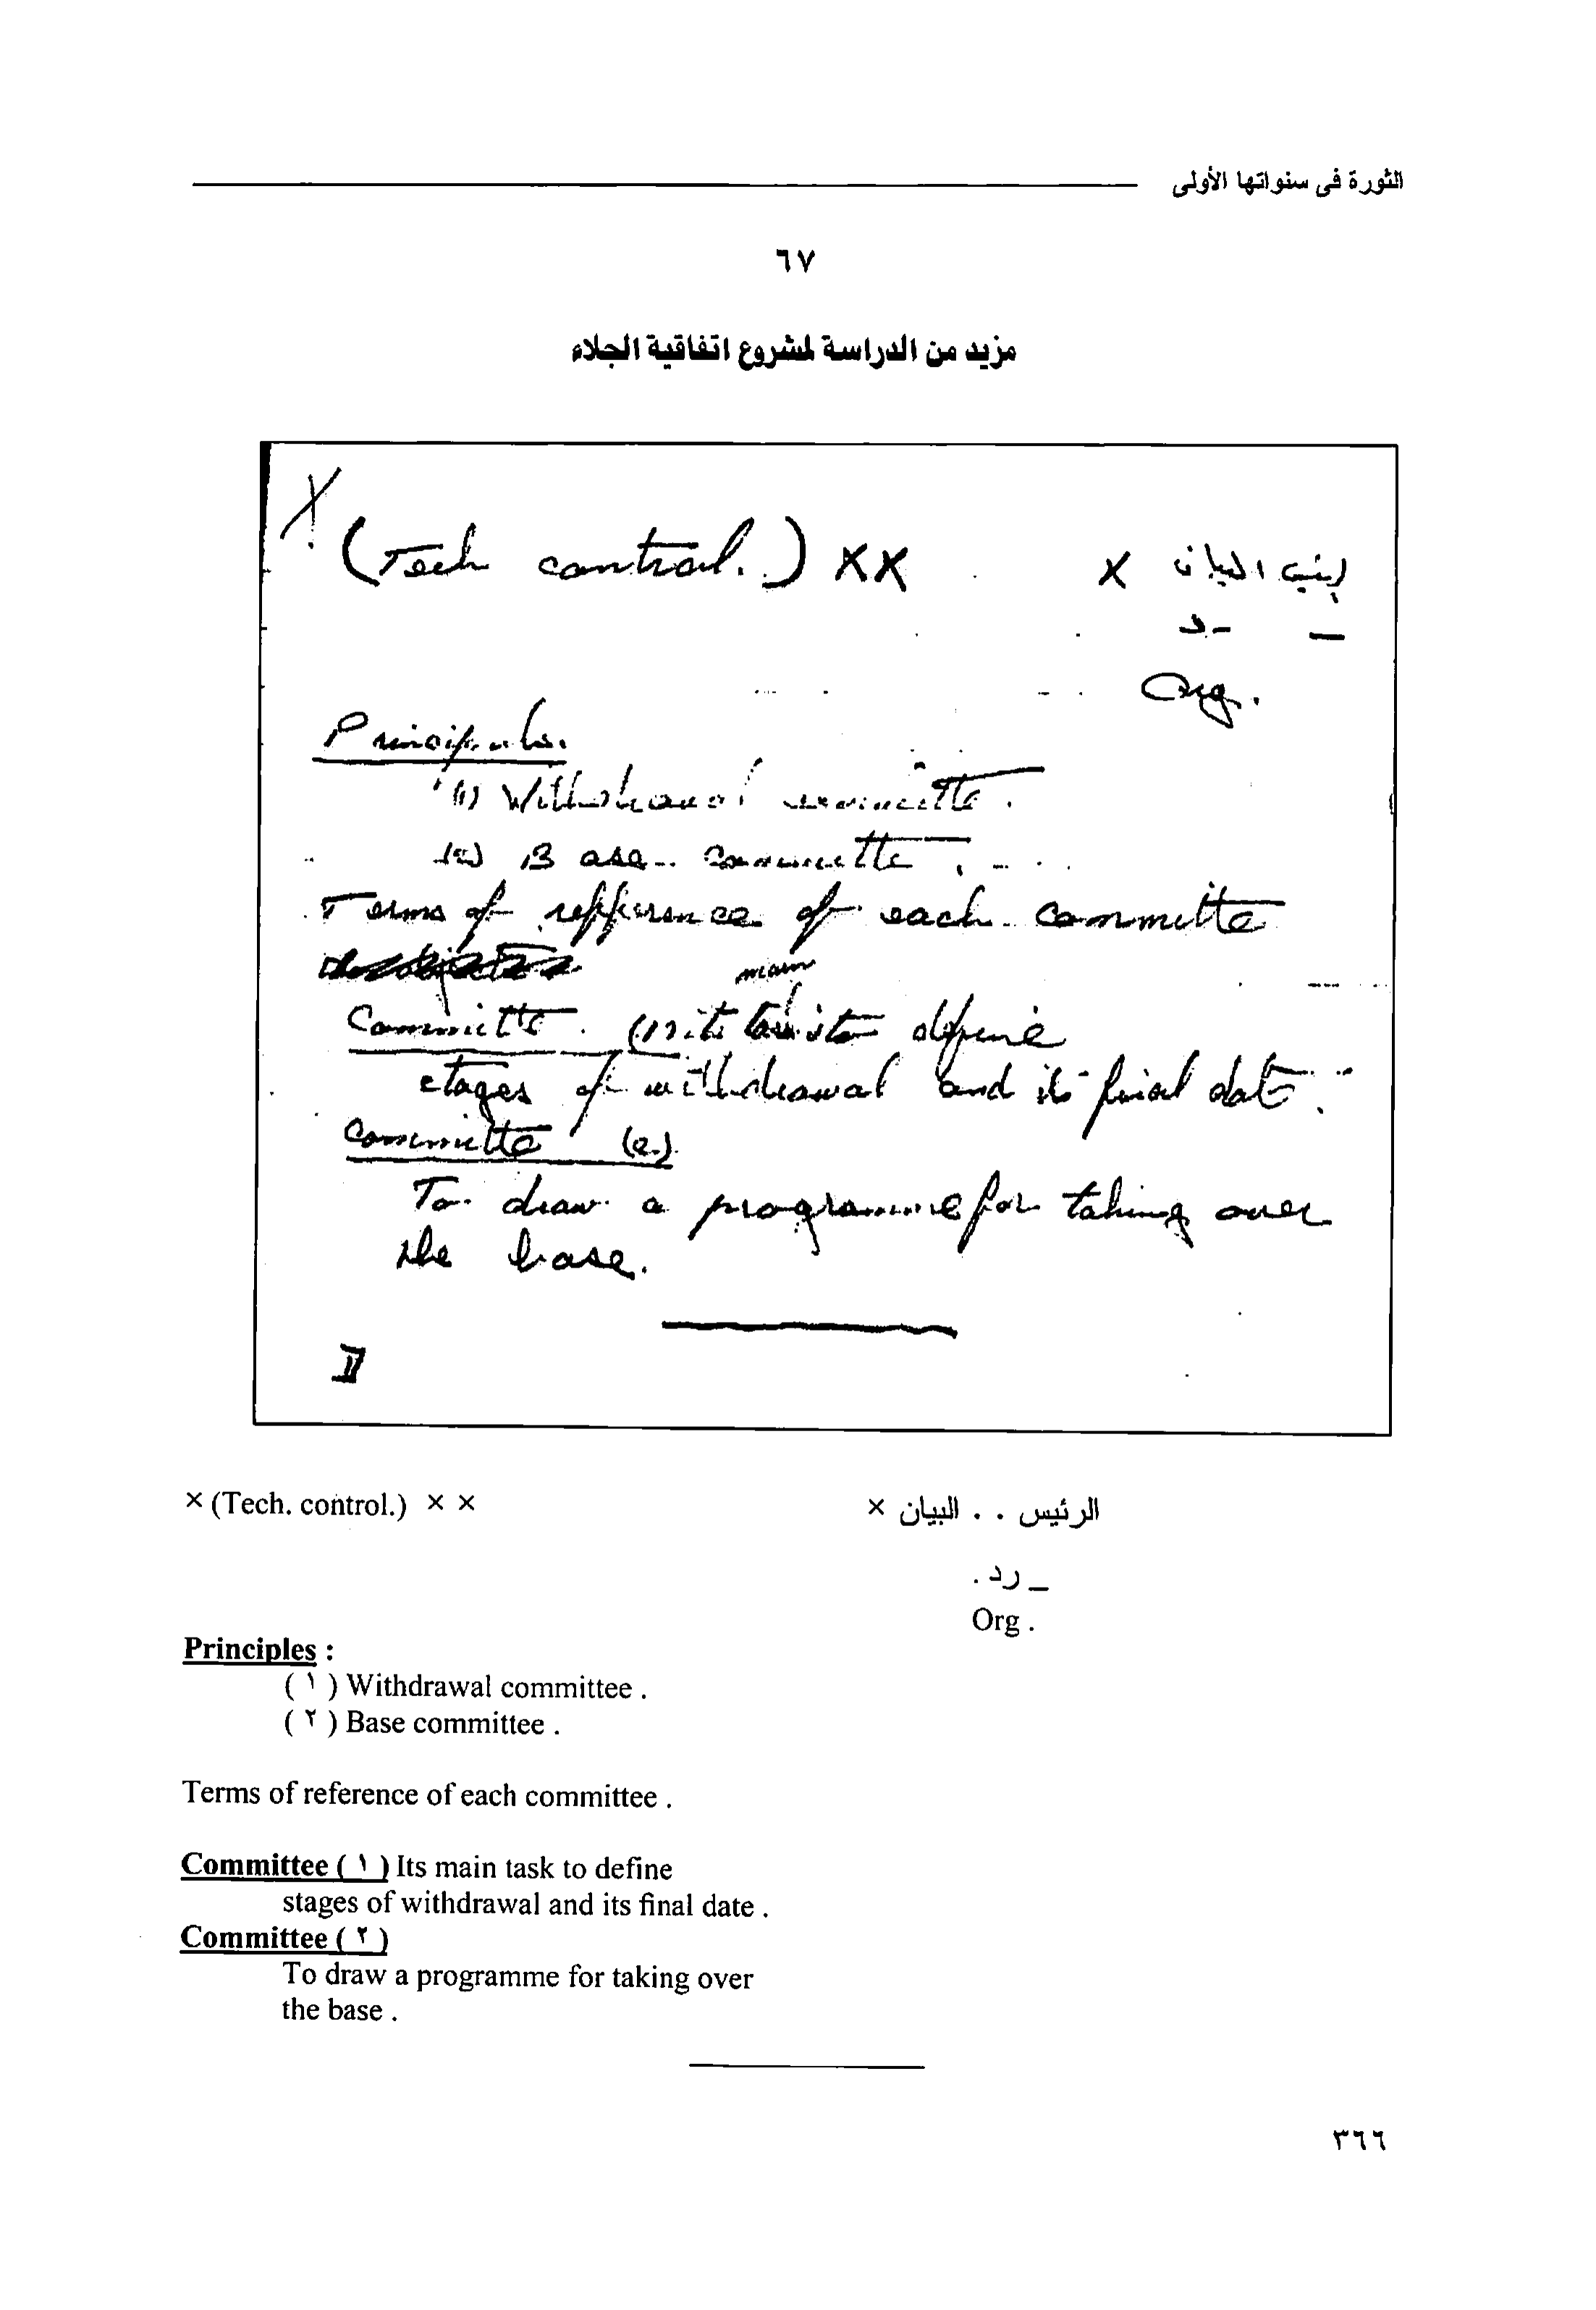 الثورة فى سنواتها الأولى
٦٧
مزيد من الدراسة لمشروع اتفاقية الجلاء
X (Tech control.) XX
البيان X
- د
-
Org.
(1) Withdrawal committe.
(2) Base committe.
Terms of refference of each committe
main
Committe (1) its task is to define
stages of withdrawal and its final date.
committe (2)
To draw a programme for taking over
the base.
II
× (Tech. control.) × ×
الرئيس . . البيان ×
_ رد .
Org .
Principles :
( ١ ) Withdrawal committee .
( ٢ ) Base committee .
Terms of reference of each committee .
Committee ( ١ ) Its main task to define
stages of withdrawal and its final date .
Committee ( ٢ )
To draw a programme for taking over
the base .
٣٦٦